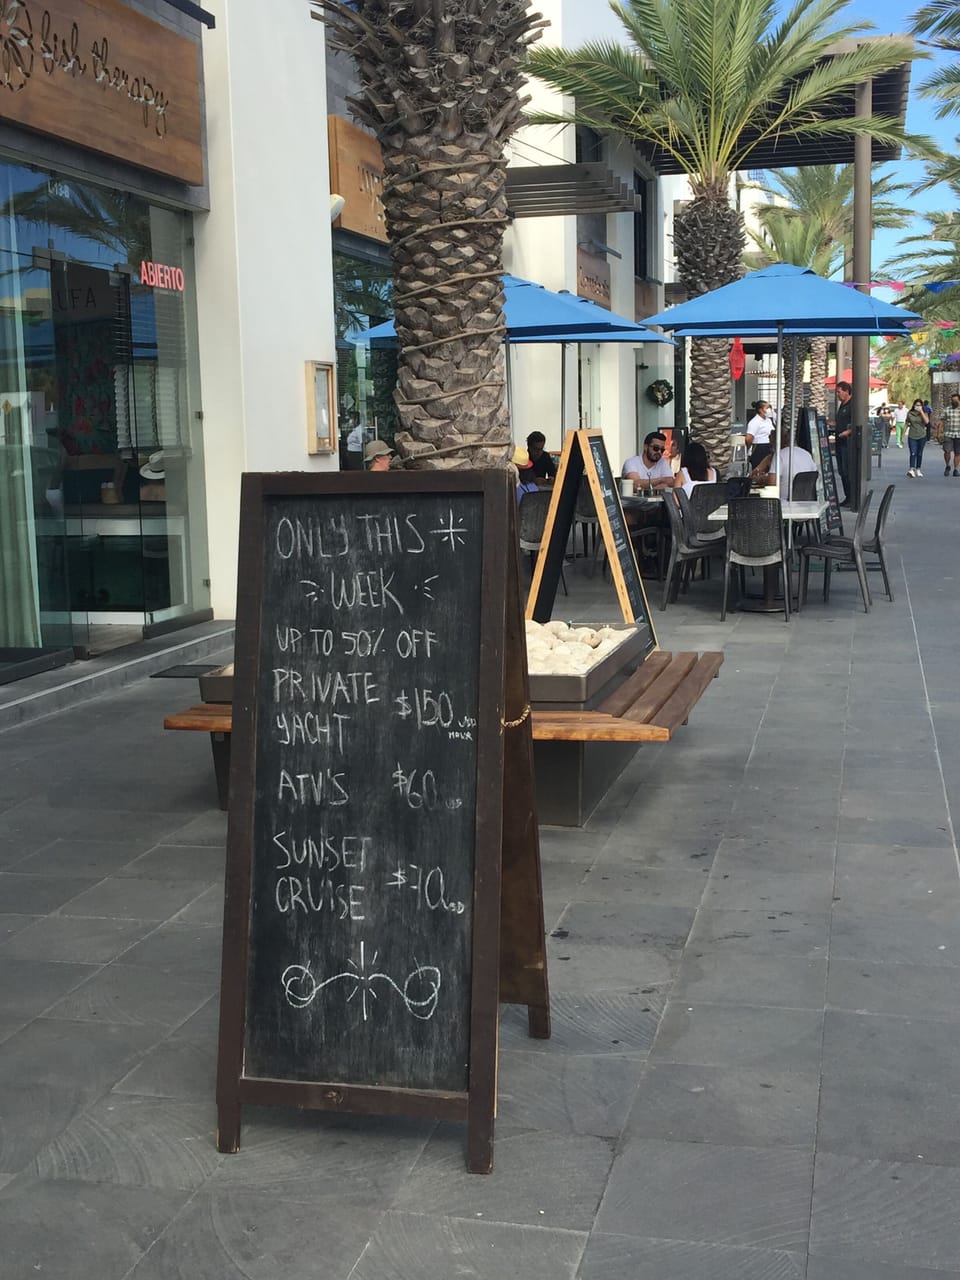 fish therapy
L13-B
ABIERTO
UFA
ONLY THIS
WEEK
UP TO 50% OFF
PRIVATE
YACHT
$150 USD
HOUR
ATV'S $60 USD
SUNSET
CRUISE $70 USD